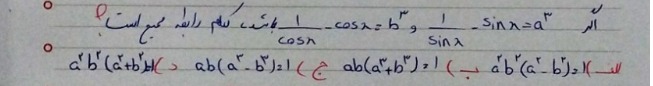 اگر 1/sinx - sinx = a³ و 1/cosx - cosx = b³ باشد، کدام رابطه صحیح است؟
الف) a²b²(a²-b²)=1 ب) ab(a³+b³)=1 ج) ab(a³-b³)=1 د) a²b²(a²+b²)=1